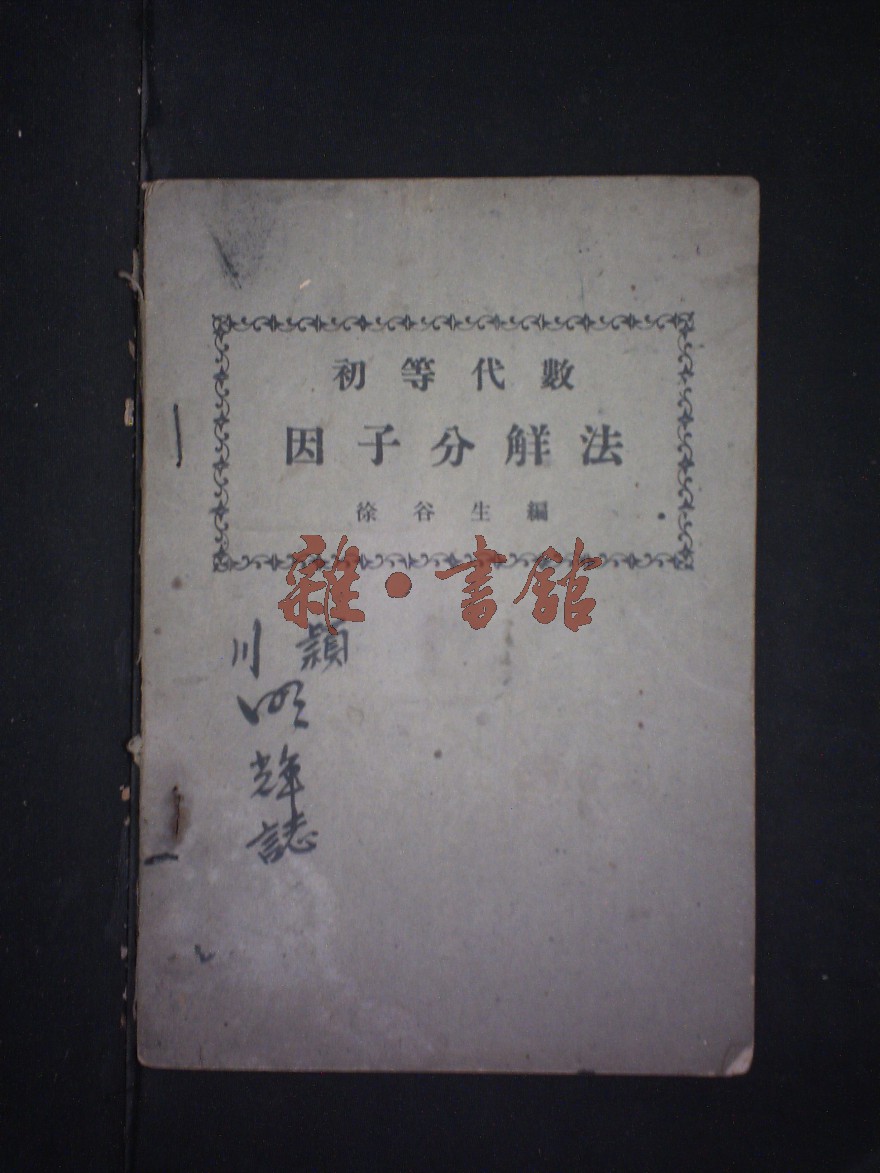 初等代數
因子分觧法
徐谷生編
雜·書館
潁川
明輝誌